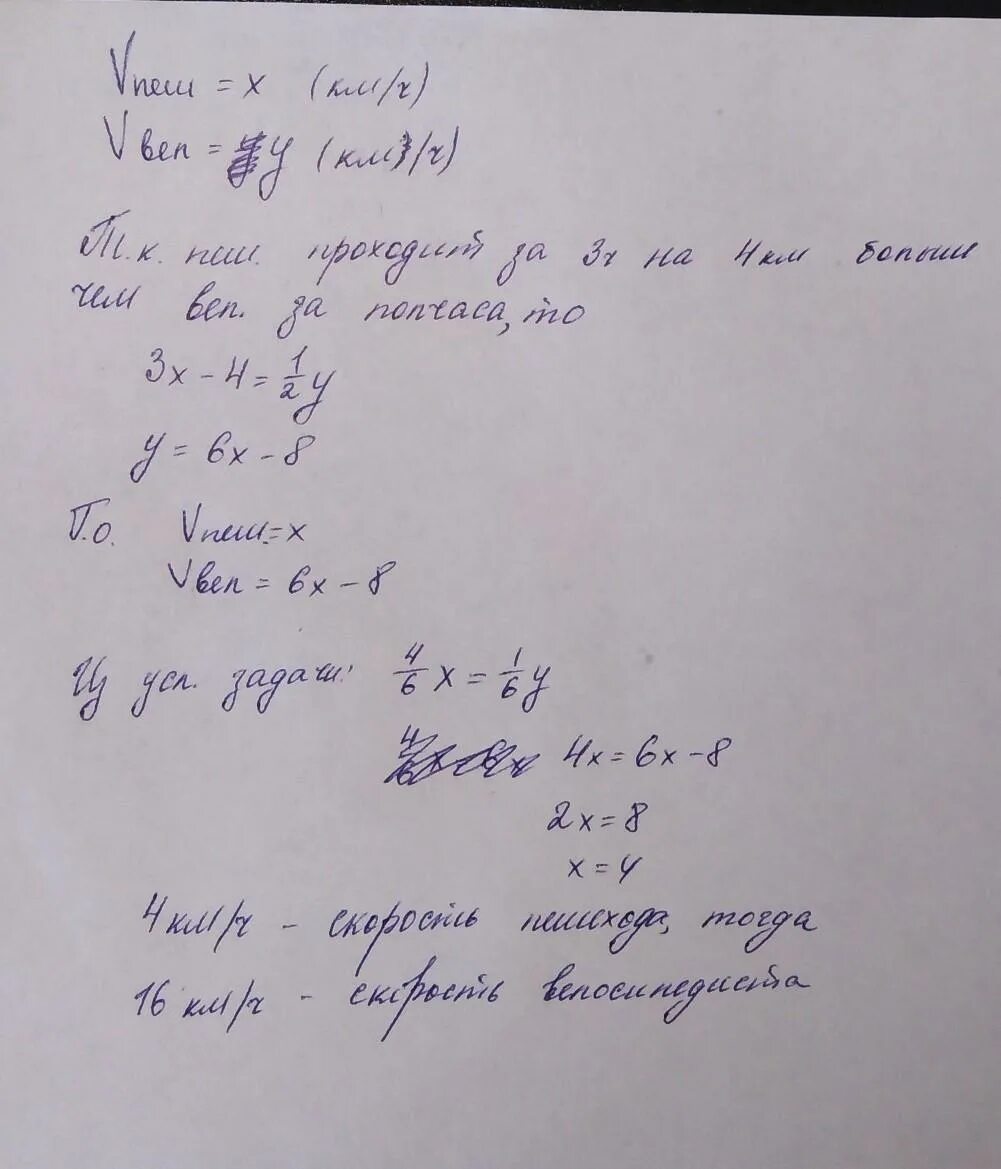 Vпеш = x (км/ч)
Vвел = y (км/ч)
Т.к. пеш. проходит за 3ч на 4км больше
чем вел. за полчаса, то
3x - 4 = 1/2 y
y = 6x - 8
Т.о. Vпеш. = x
Vвел = 6x - 8
Из усл. задачи: 4/6 x = 1/6 y
4x = 6x - 8
2x = 8
x = 4
4 км/ч - скорость пешехода, тогда
16 км/ч - скрость велосипедиста